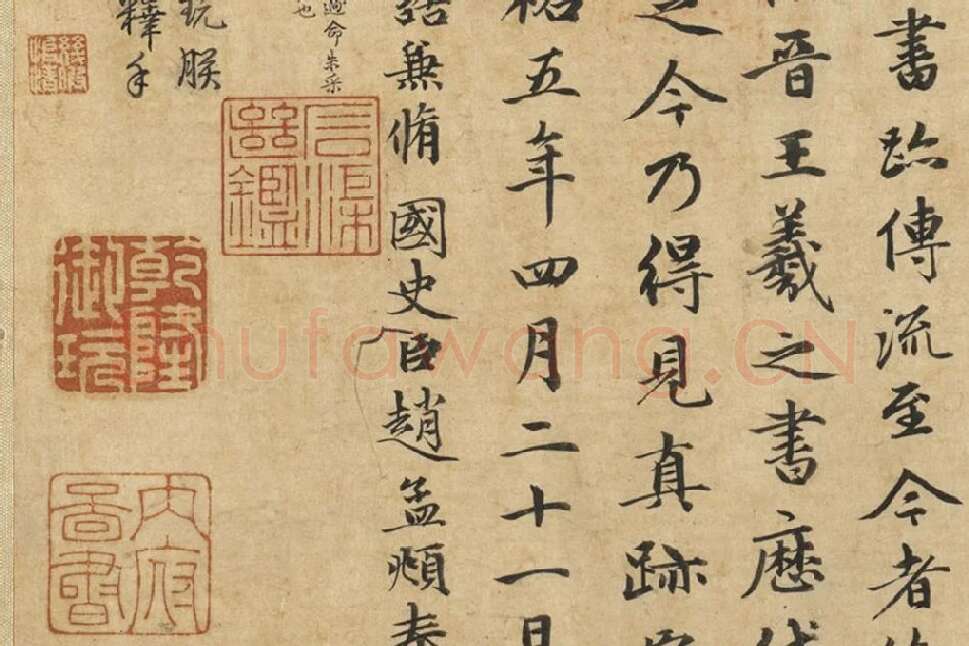 書跡傳流至今者
晉王羲之書歷代
之今乃得見真跡臣
祐五年四月二十一日
誥兼脩國史臣趙孟頫奉
也
玩朕
釋手
乾隆御玩
內府圖書
shufawang.CN